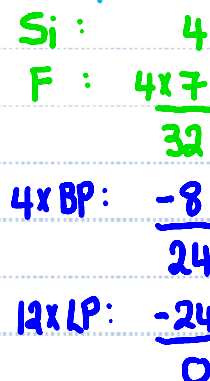 Si : 4
F : 4x7
32
4xBP: -8
24
12xLP: -24
0